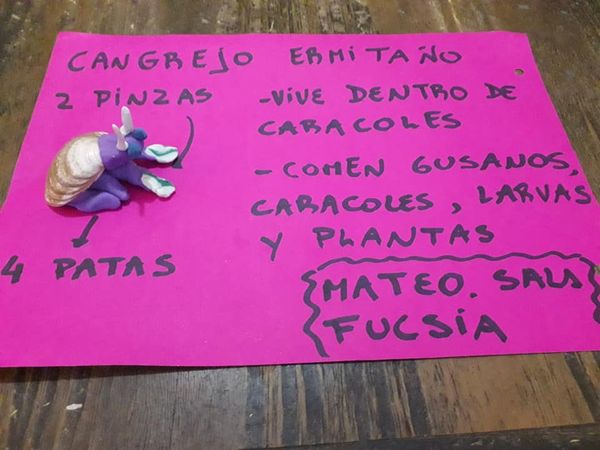 CANGREJO ERMITAÑO
2 PINZAS
-VIVE DENTRO DE
CARACOLES
- COMEN GUSANOS,
CARACOLES, LARVAS
Y PLANTAS
4 PATAS
MATEO. SALA
FUCSIA